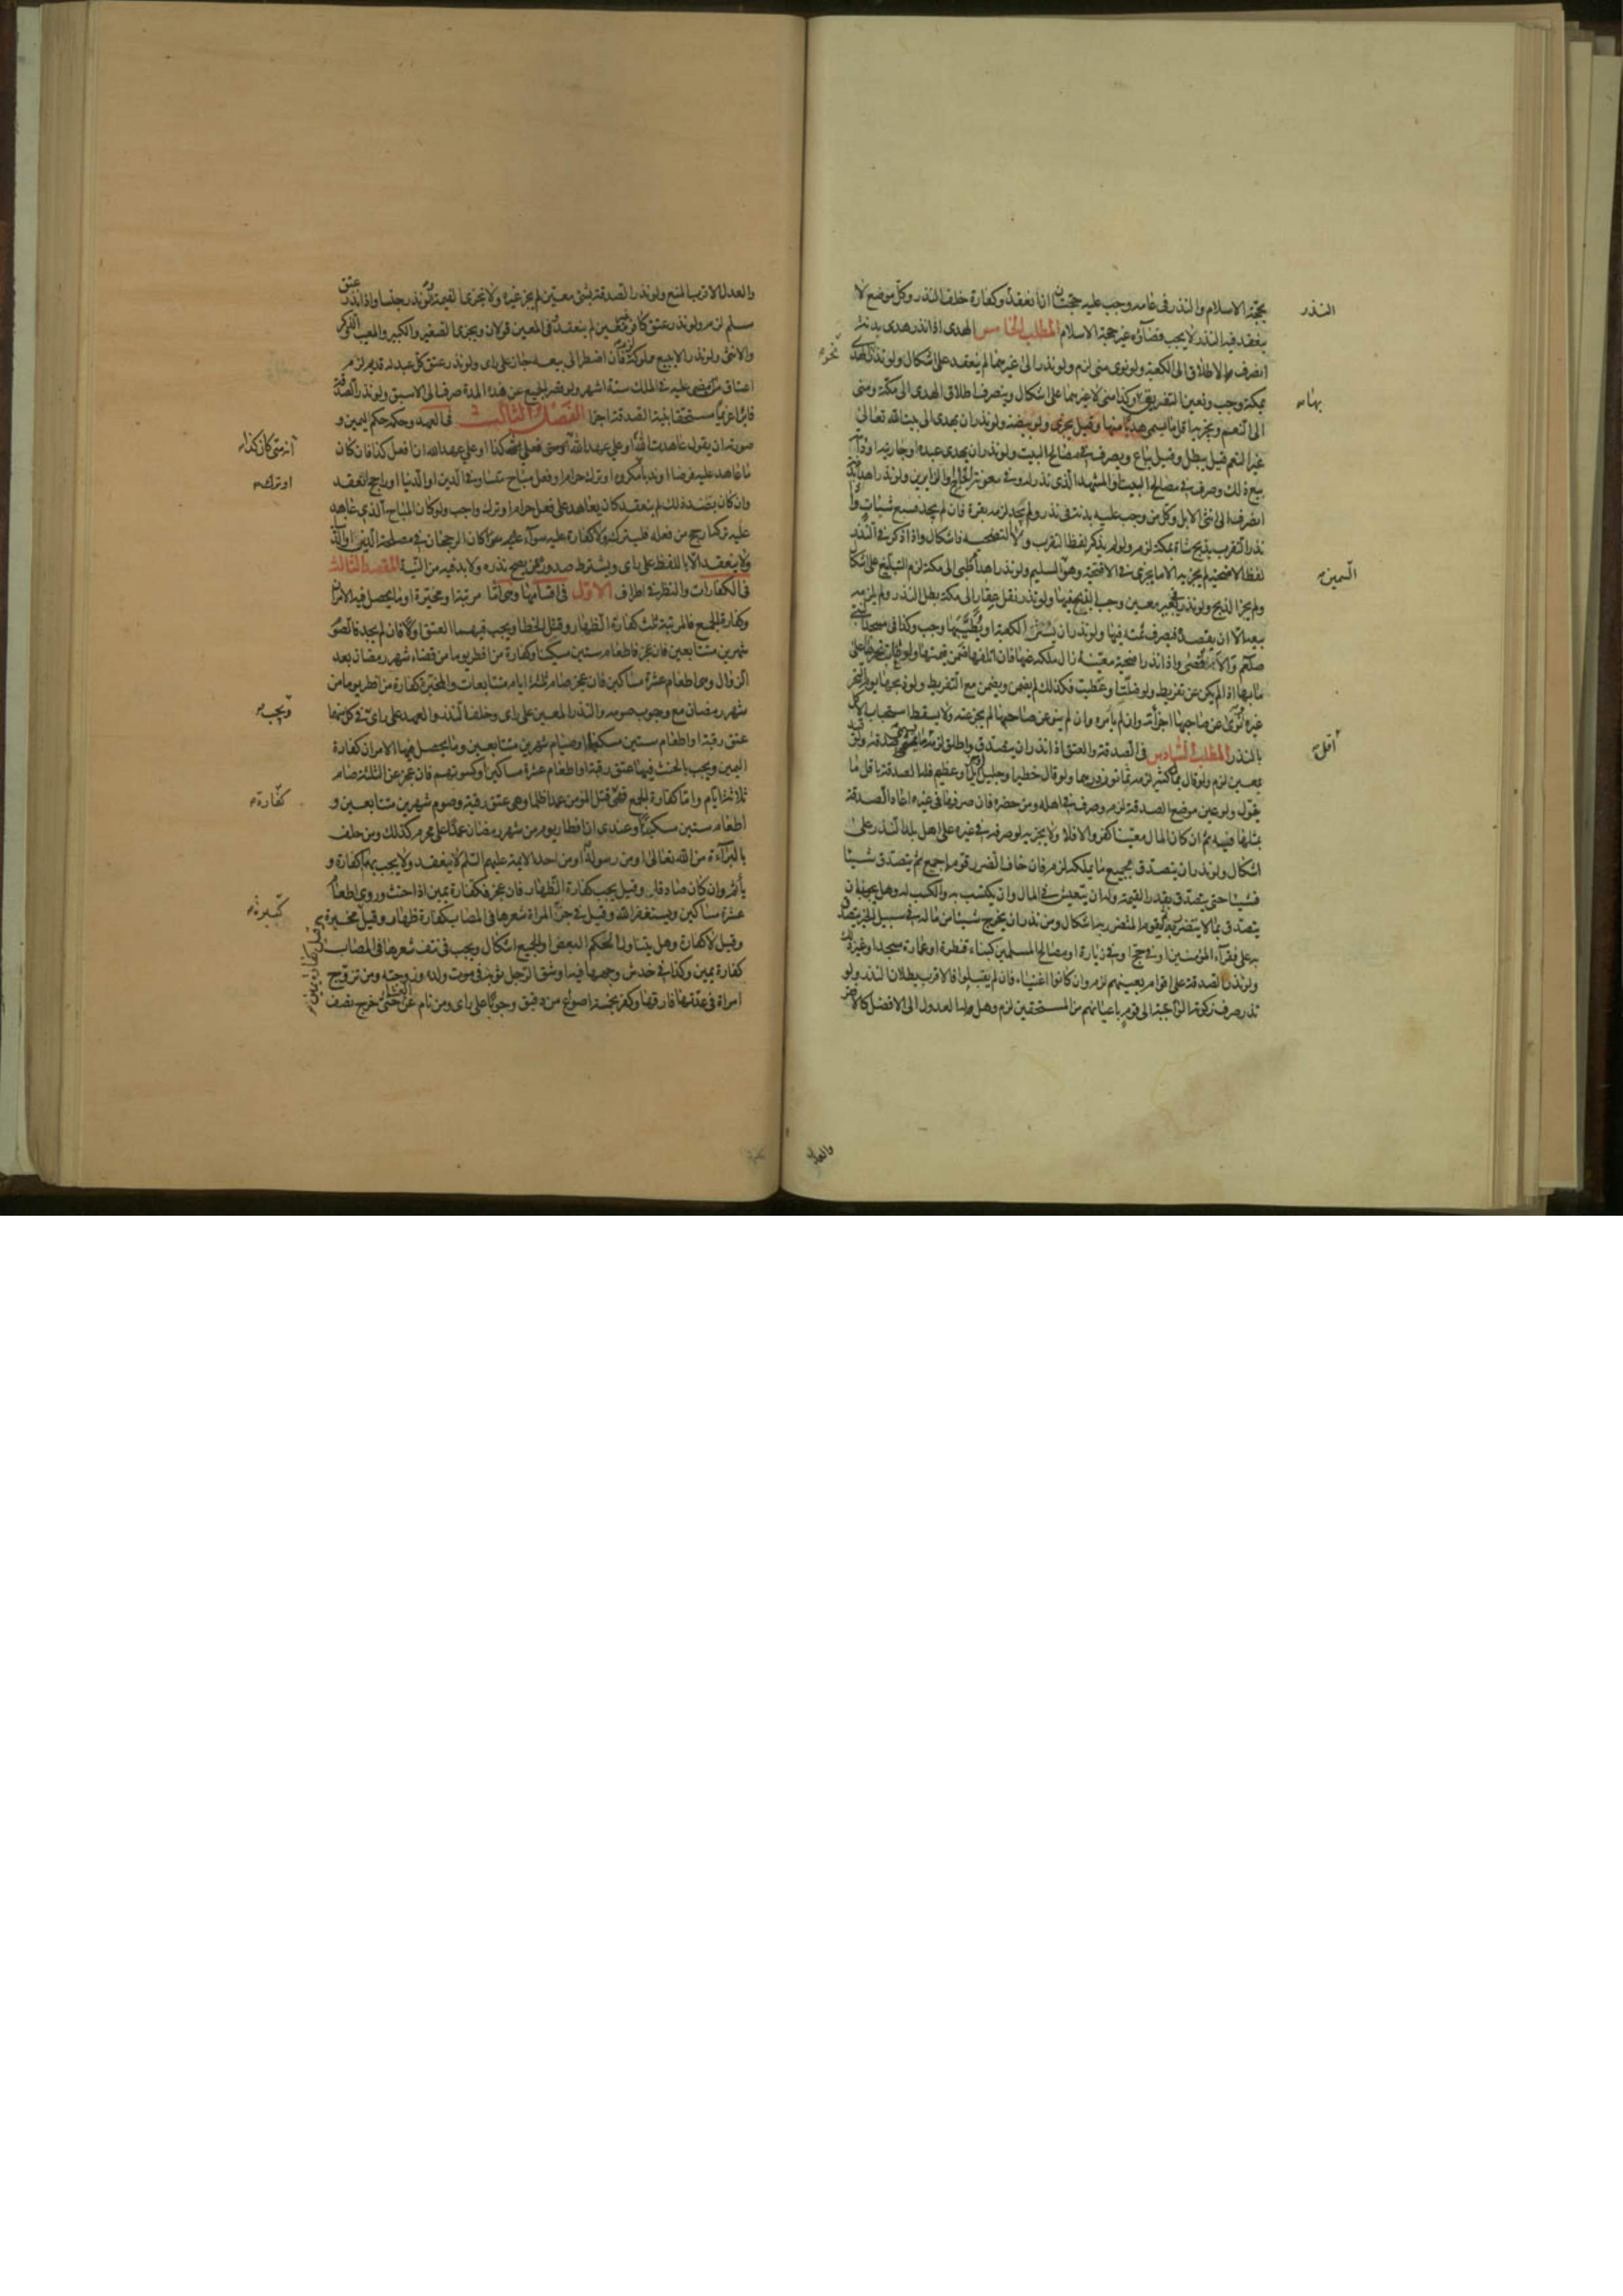 بحجة الاسلام والنذر فى عامه وجب عليه حجتان اذا نعقد وكفارة خلف النذر وكل موضع لا
ينعقد فيه النذر لا يجب قضاؤه غير حجة الاسلام المطلب الخامس الهدى اذا نذر هدى بدنة
انصرف الاطلاق الى الكعبة ولو نوى منى لزم ولو نذر الى غيرهما لم ينعقد على اشكال ولو نذر
بمكة وجب وتعين التفريق بها وكذا منى لا غيرهما على اشكال وينصرف اطلاق الهدى الى مكة ومنى
الى النعم ويجزيه اقل ما يسمى هديا منها وقيل يجزى ولو بيضة ولو نذر ان يهدى الى بيت الله تعالى
غير النعم قيل يبطل وقيل يباع ويصرف فى مصالح البيت ولو نذر ان يهدى عبده او جاريته او دابته
بيع ذلك وصرف فى مصالح البيت او المشهد الذى نذر له وفى معونة الحاج والزايرين ولو نذر اهداء بدنة
انصرف الى انثى الابل وكل من وجب عليه بدنة فى نذر ولم يجد لزمه بقرة فان لم يجد فسبع شياه ولو
نذر التقرب بذبح شاة بمكة لزم ولو لم يذكر لفظ التقرب ولا التضحية فاشكال واذا ذكر فى النذر
لفظ الاضحية لم يجزيه الا ما يجزى فى الاضحية وهو السليم ولو نذر اهداء ظبى الى مكة لزم التبليغ على اشكال
ولم يجز الذبح ولو نذر فى غير معين وجب الذبح فيها ولو نذر نقل عقار الى مكة بطل النذر ولم يلزمه
بيعه الا ان يقصده فيصرف ثمنه فيها ولو نذر ان يستر الكعبة او يطيبها وجب وكذا فى مسجد النبى
صلعم والاقصى واذا نذر اضحية معينة زال ملكه عنها فان اتلفها ضمن قيمتها ولو عابت نحرها على
ما بها اذا لم يكن عن تفريط ولو ضلت او عطبت فكذلك لم يضمن ويضمن مع التفريط ولو ذبحها يوم النحر
غيره ونوى عن صاحبها اجزأته وان لم يأمره وان لم ينو عن صاحبها لم يجز عنه ولا يسقط استحباب الاكل
بالنذر المطلب السادس فى الصدقة والعتق اذا نذر ان يتصدق واطلق لزمه ما يسمى صدقة ولو قيد
بمعين لزم ولو قال بمال كثير لزمه ثمانون درهما ولو قال خطير او جليل او جزيل او عظيم فله الصدقة باقل ما
يقول ولو عين موضع الصدقة لزم وصرف فى اهله ومن حضره فان صرفها فى غيره اعاد الصدقة
بمثلها فيه ثم ان كان المال معينا كفر والا فلا ولا يجزيه لو صرفه فى غيره على اهل بلد النذر على
اشكال ولو نذر ان يتصدق بجميع ما يملكه لزم فان خاف الضرر قوم الجميع ثم يتصدق شيئا
فشيئا حتى يتصدق بقدر القيمة وله ان يتعيش فى المال وان يكتسب به والكسب له وهل يجب ان
يتصدق بما لا يتضرر به ثم يقوم المتضرر به اشكال ومن نذر ان يخرج شيئا من ماله فى سبيل الخير يتصدق
به على فقراء المؤمنين او فى حج او فى زيارة او مصالح المسلمين كبناء قنطرة او عمارة مسجد او غير ذلك
ولو نذر الصدقة على اقوام بعينهم لزم وان كانوا اغنياء فان لم يقبلوا فالاقرب بطلان النذر ولو
نذر صرف زكوته الواجبة الى قوم باعيانهم من المستحقين لزم وهل له العدول الى الافضل كالافقر
النذر
نحره
بها
السمين
اقل
والعدل
والعدل الاقرب المنع ولو نذر الصدقة بشئ معين لم يجز غيره ولا يجزى القيمة لو نذر جنسا واذا نذر عتق
مسلم لزم ولو نذر عتق كافر غير معين لم ينعقد وفى المعين قولان ويجزى الصغير والكبير والمعيب والذكر
والانثى ولو نذر الا يبيع مملوكه لزم فان اضطر الى بيعه جاز على راى ولو نذر عتق كل عبد له قديم لزم
اعتاق من مضى عليه فى الملك ستة اشهر ولو قصر الجميع عن هذه المدة صرف الى الاسبق ولو نذر الصدقة
فابرأ غريما مستحقا بنية الصدقة اجزأ الفصل الثالث فى العهد وحكمه حكم اليمين و
صورته ان يقول عاهدت الله او على عهد الله انه متى فعل كذا فعلى كذا او على عهد الله ان افعل كذا فان كان
ما عاهد عليه فرضا او ندبا او ترك مكروه او ترك حرام او فعل مباح متساو فى الدين او الدنيا او راجح انعقد
وان كان بضد ذلك لم ينعقد كان يعاهد على فعل حرام او ترك واجب ولو كان المباح الذى عاهد
عليه تركه ارجح من فعله فليتركه ولا كفارة عليه سواء كان الرجحان فى مصلحة الدين او الدنيا
ولا ينعقد الا باللفظ على راى ويشترط صدوره ممن يصح نذره ولا بد فيه من النية المقصد الثالث
فى الكفارات والنظر فى اطراف الاول فى اقسامها وهى اما مرتبة او مخيرة او ما يحصل فيه الامران
وكفارة الجمع فالمرتبة ثلث كفارة الظهار وقتل الخطا ويجب فيهما العتق اولا فان لم يجد فالصوم
شهرين متتابعين فان عجز فاطعام ستين مسكينا وكفارة من افطر يوما من قضاء شهر رمضان بعد
الزوال وهى اطعام عشرة مساكين فان عجز صام ثلثة ايام متتابعات والمخيرة كفارة من افطر يوما من
شهر رمضان مع وجوب صومه والنذر المعين على راى وخلف النذر والعهد على راى فى كل منها
عتق رقبة او اطعام ستين مسكينا او صيام شهرين متتابعين وما يحصل فيها الامران كفارة
اليمين ويجب بالحنث فيها عتق رقبة او اطعام عشرة مساكين او كسوتهم فان عجز عن الثلثة صام
ثلاثة ايام واما كفارة الجمع ففى قتل المؤمن عمدا ظلما وهى عتق رقبة وصوم شهرين متتابعين و
اطعام ستين مسكينا وعندى ان افطار يوم من شهر رمضان عمدا على محرم كذلك ومن حلف
بالبراءة من الله تعالى او من رسوله او من احد الايمة عليهم السلم لا ينعقد ولا يجب بها كفارة و
يأثم وان كان صادقا وقيل يجب كفارة الظهار فان عجز فكفارة يمين اذا حنث وروى اطعام
عشرة مساكين ويستغفر الله وقيل فى جز المراة شعرها فى المصاب كفارة ظهار وقيل مخيرة
وقيل لا كفارة وهل يتناول الحكم البعض او الجميع اشكال ويجب فى نتف شعرها فى المصاب
كفارة يمين وكذا فى خدش وجهها فيه او شق الرجل ثوبه فى موت ولده وزوجته ومن تزوج
امراة فى عدتها فارقها وكفر بخمسة اصوع من دقيق وجوبا على راى ومن نام عن العشاء حتى خرج نصف
انه متى كان كذا
او ترك
ويجب
كفارة
كبيرة